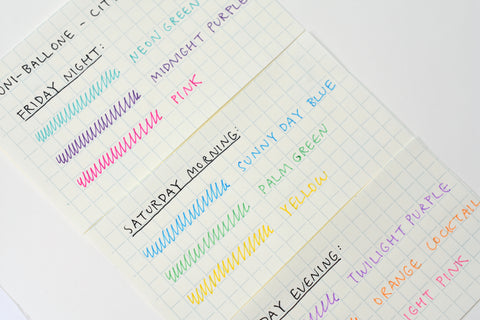 UNI-BALLONE - CIT
FRIDAY NIGHT:
NEON GREEN
MIDNIGHT PURPLE
PINK
SATURDAY MORNING:
SUNNY DAY BLUE
PALM GREEN
YELLOW
DAY EVENING:
TWILIGHT PURPLE
ORANGE COCKTAIL
IGHT PINK